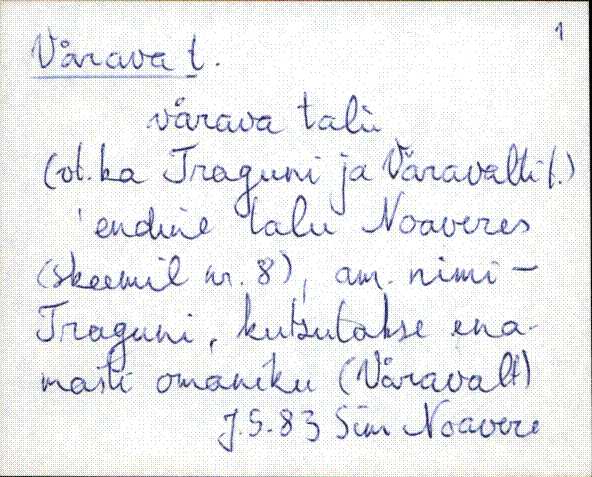 1
Värava t.
värava talù
(vt. ka Traguni ja Väravalti t.)
'endine talu Noaveres
(skeemil nr. 8), am. nimi –
Traguni, kutsutakse ena-
masti omaniku (Väravalt)
J.S. 83 Sim Noavere